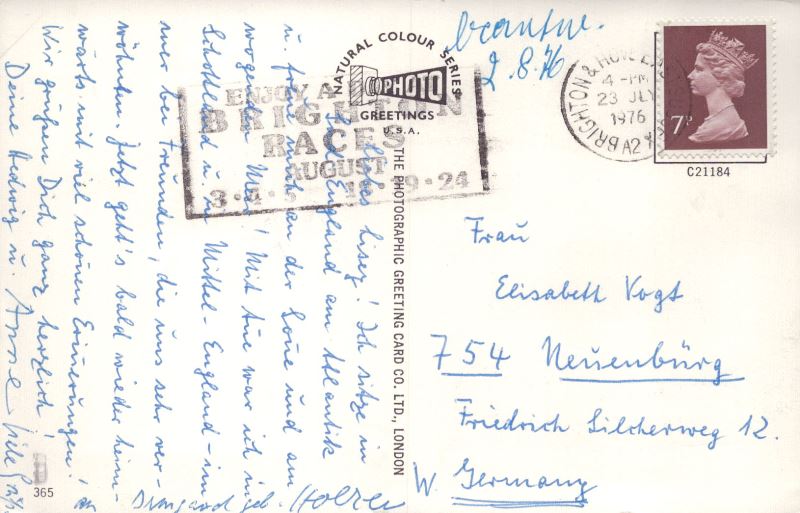 Liebes Lisey! Ich sitze in
Süd England am Atlantik
u. freue mich an der Sonne und am
wogenden Meer! Mit Aue war ich in
Schottland u. in Mittel-England - im-
mer bei Freunden, die uns sehr ver-
wöhnten. Jetzt geht's bald wieder heim-
wärts mit viel schönen Erinnerungen!
Wir grüßen Dich ganz herzlich!
Deine Hedwig u. Anne
viele Grüße
Irmgard
365
NATURAL COLOUR SERIES
PHOTO
GREETINGS
U.S.A.
THE PHOTOGRAPHIC GREETING CARD CO. LTD., LONDON
ENJOY A
BRIGHTON
RACES
AUGUST
3·4· 18·19·24
beantw.
2.8.76
BRIGHTON & HOVE
4-PM
23 JLY
1976
A2
7P
C21184
Frau
Elisabeth Vogt
754 Neuenbürg
Friedrich Silcherweg 12.
W. Germany